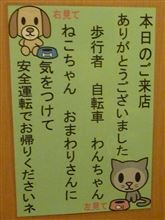 本日のご来店
ありがとうございました
歩行者 自転車 わんちゃん
ねこちゃん おまわりさんに
気をつけて
安全運転でお帰りくださいネ
右見て
左見て